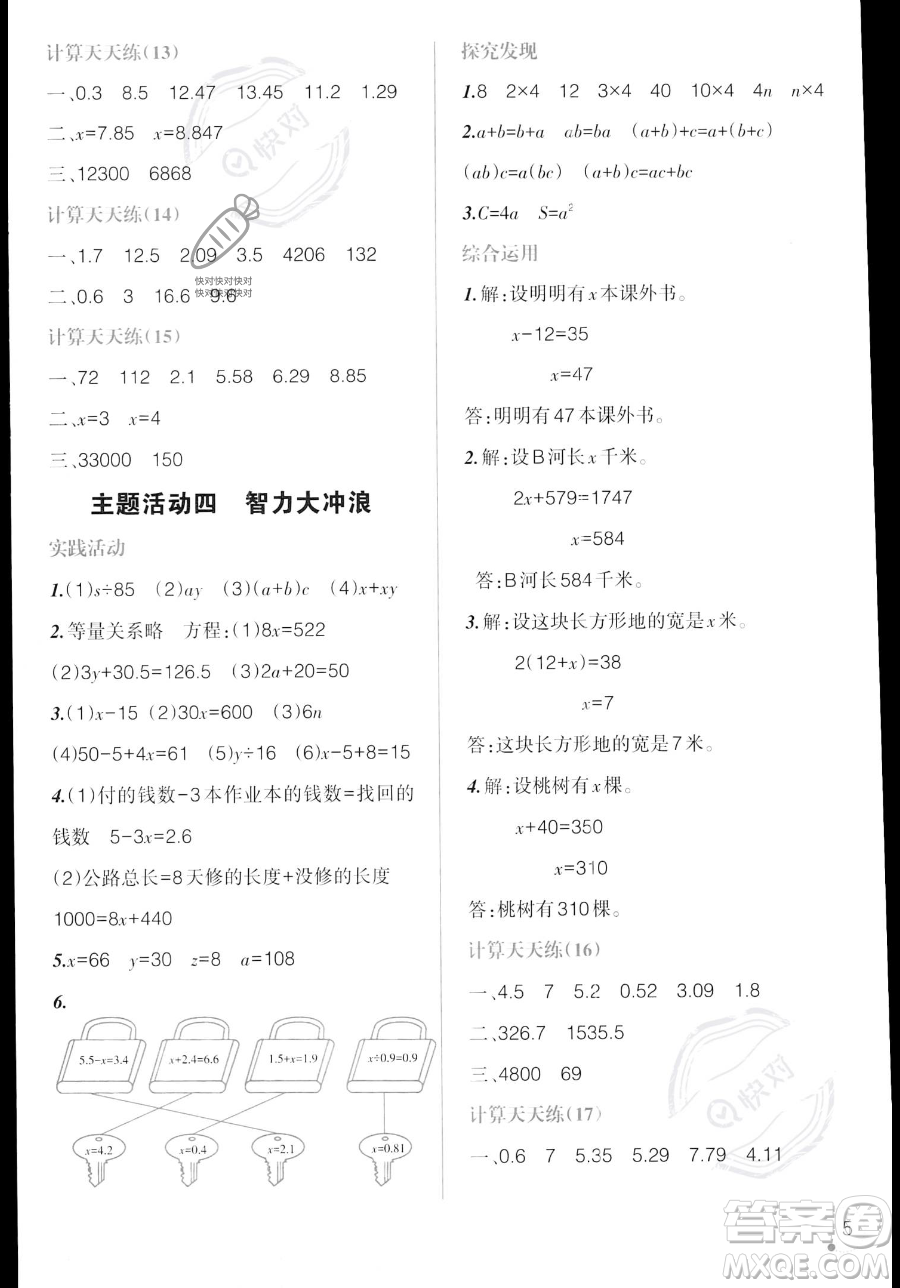 计算天天练(13)
一、0.3 8.5 12.47 13.45 11.2 1.29
二、x=7.85 x=8.847
三、12300 6868
计算天天练(14)
一、1.7 12.5 2.09 3.5 4206 132
二、0.6 3 16.6 9.6
计算天天练(15)
一、72 112 2.1 5.58 6.29 8.85
二、x=3 x=4
三、33000 150
主题活动四 智力大冲浪
实践活动
1.(1)s÷85 (2)ay (3)(a+b)c (4)x+xy
2.等量关系略 方程:(1)8x=522
(2)3y+30.5=126.5 (3)2a+20=50
3.(1)x-15 (2)30x=600 (3)6n
(4)50-5+4x=61 (5)y÷16 (6)x-5+8=15
4.(1)付的钱数-3本作业本的钱数=找回的
钱数 5-3x=2.6
(2)公路总长=8天修的长度+没修的长度
1000=8x+440
5.x=66 y=30 z=8 a=108
6.
5.5-x=3.4 x+2.4=6.6 1.5+x=1.9 x÷0.9=0.9
x=4.2 x=0.4 x=2.1 x=0.81
探究发现
1.8 2×4 12 3×4 40 10×4 4n n×4
2.a+b=b+a ab=ba (a+b)+c=a+(b+c)
(ab)c=a(bc) (a+b)c=ac+bc
3.C=4a S=a²
综合运用
1.解:设明明有x本课外书。
x-12=35
x=47
答:明明有47本课外书。
2.解:设B河长x千米。
2x+579=1747
x=584
答:B河长584千米。
3.解:设这块长方形地的宽是x米。
2(12+x)=38
x=7
答:这块长方形地的宽是7米。
4.解:设桃树有x棵。
x+40=350
x=310
答:桃树有310棵。
计算天天练(16)
一、4.5 7 5.2 0.52 3.09 1.8
二、326.7 1535.5
三、4800 69
计算天天练(17)
一、0.6 7 5.35 5.29 7.79 4.11
5
快对
快对快对快对
快对快对快对
快对
答案圈
MXQE.COM